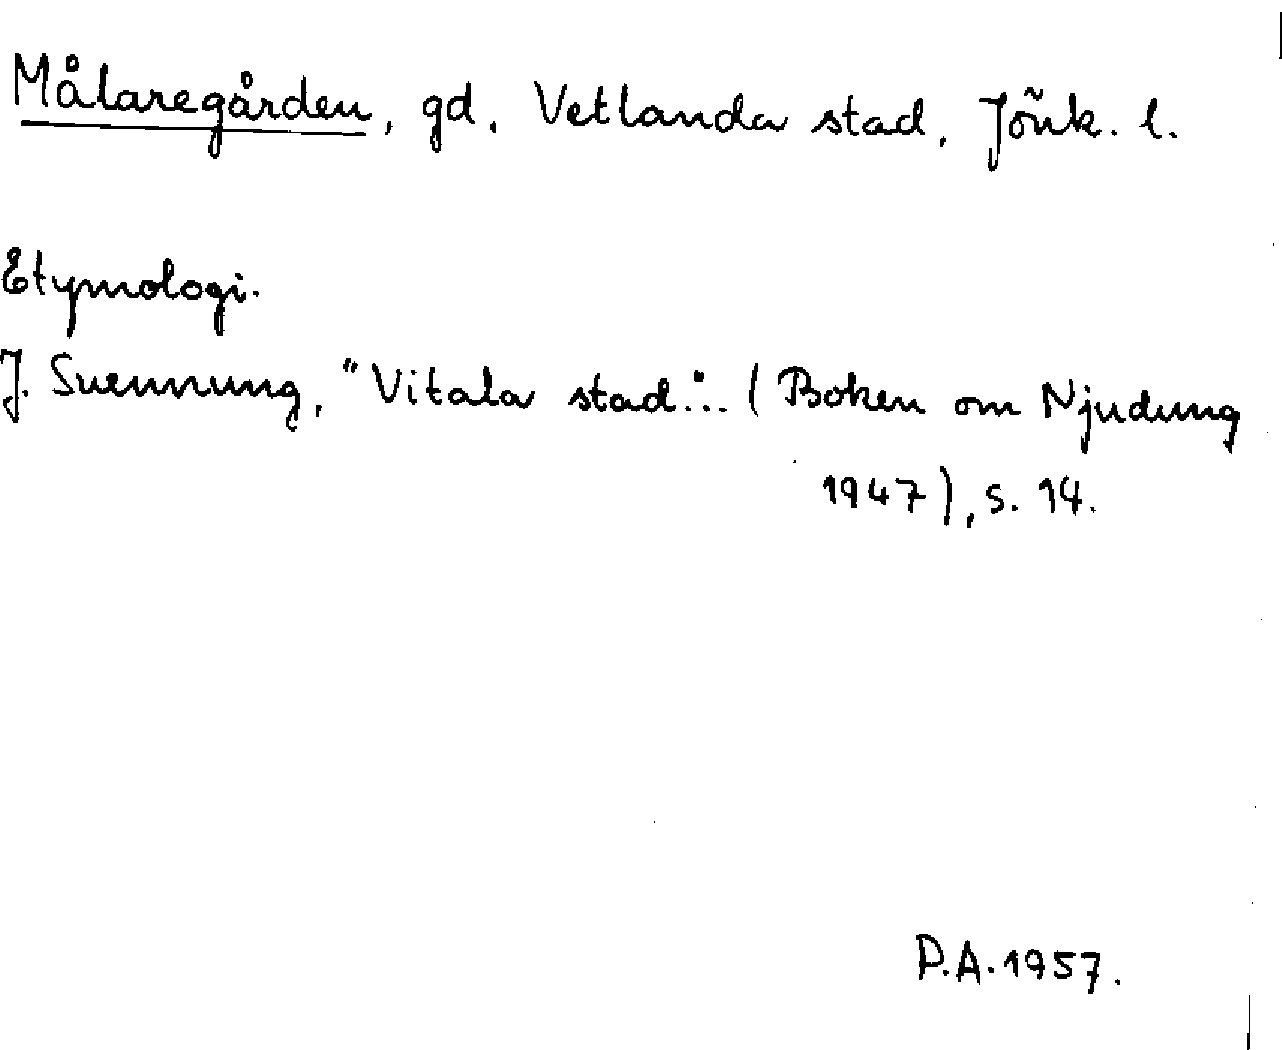 Målaregården, gd. Vetlanda stad, Jönk. l.
Etymologi.
J. Svennung, "Vitala stad"... (Boken om Njudung
1947), s. 14.
P.A. 1957.